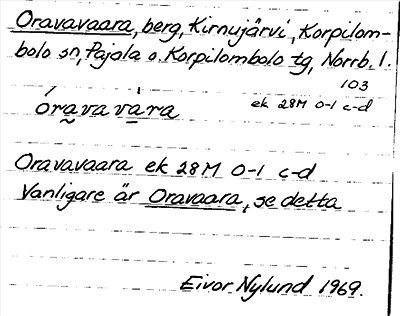 Oravavaara, berg, Kirnujärvi, Korpilom-
bolo sn, Pajala o. Korpilombolo tg, Norrb. l.
103
óravavàra ek 28M 0-1 c-d
Oravavaara ek 28M 0-1 c-d
Vanligare är Oravaara, se detta
Eivor Nylund 1969.